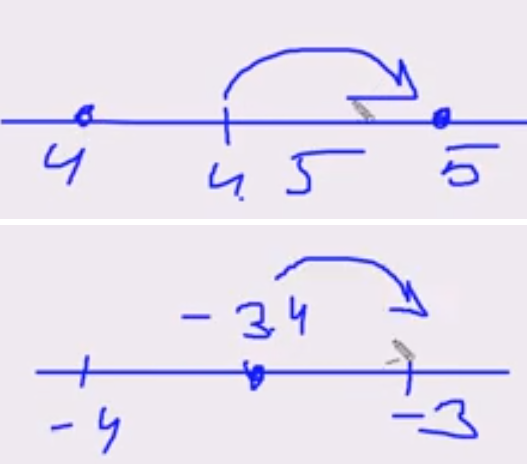 4 4.5 5
- 3.4
-4 -3